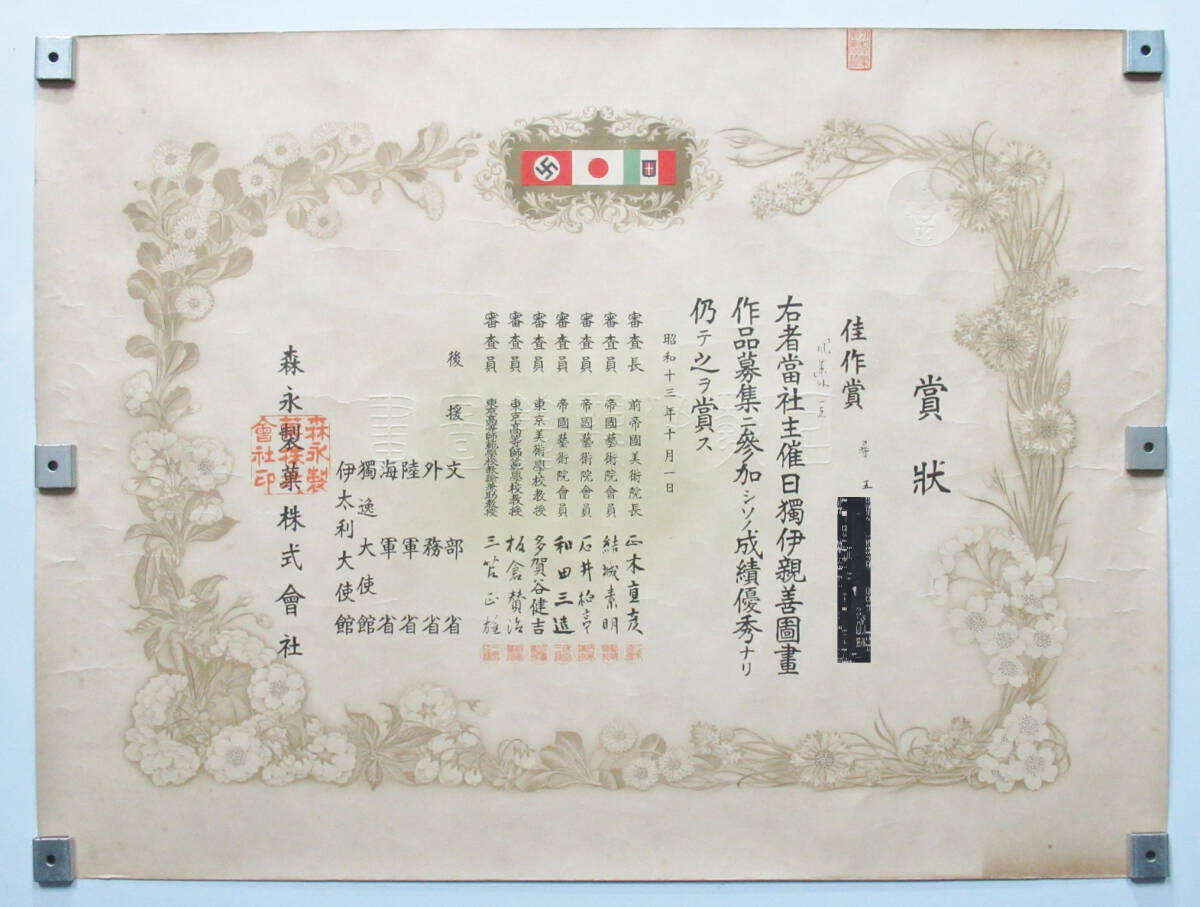 賞狀
佳作賞
尋五
右者當社主催日獨伊親善圖畫
作品募集ニ參加シソノ成績優秀ナリ
仍テ之ヲ賞ス
昭和十三年十月一日
審査長 前帝國美術院長 正木直彦
審査員 帝國藝術院會員 結城素明
審査員 帝國藝術院會員 石井柏亭
審査員 帝國藝術院會員 和田三造
審査員 東京美術學校教授 多賀谷健吉
審査員 東京高等師範學校教授 板倉賛治
審査員 東京高等師範學校教諭兼助教授 三苫正雄
後援
文部省
外務省
陸軍省
海軍省
獨逸大使館
伊太利大使館
森永製菓株式會社
森永製
菓株式
會社印